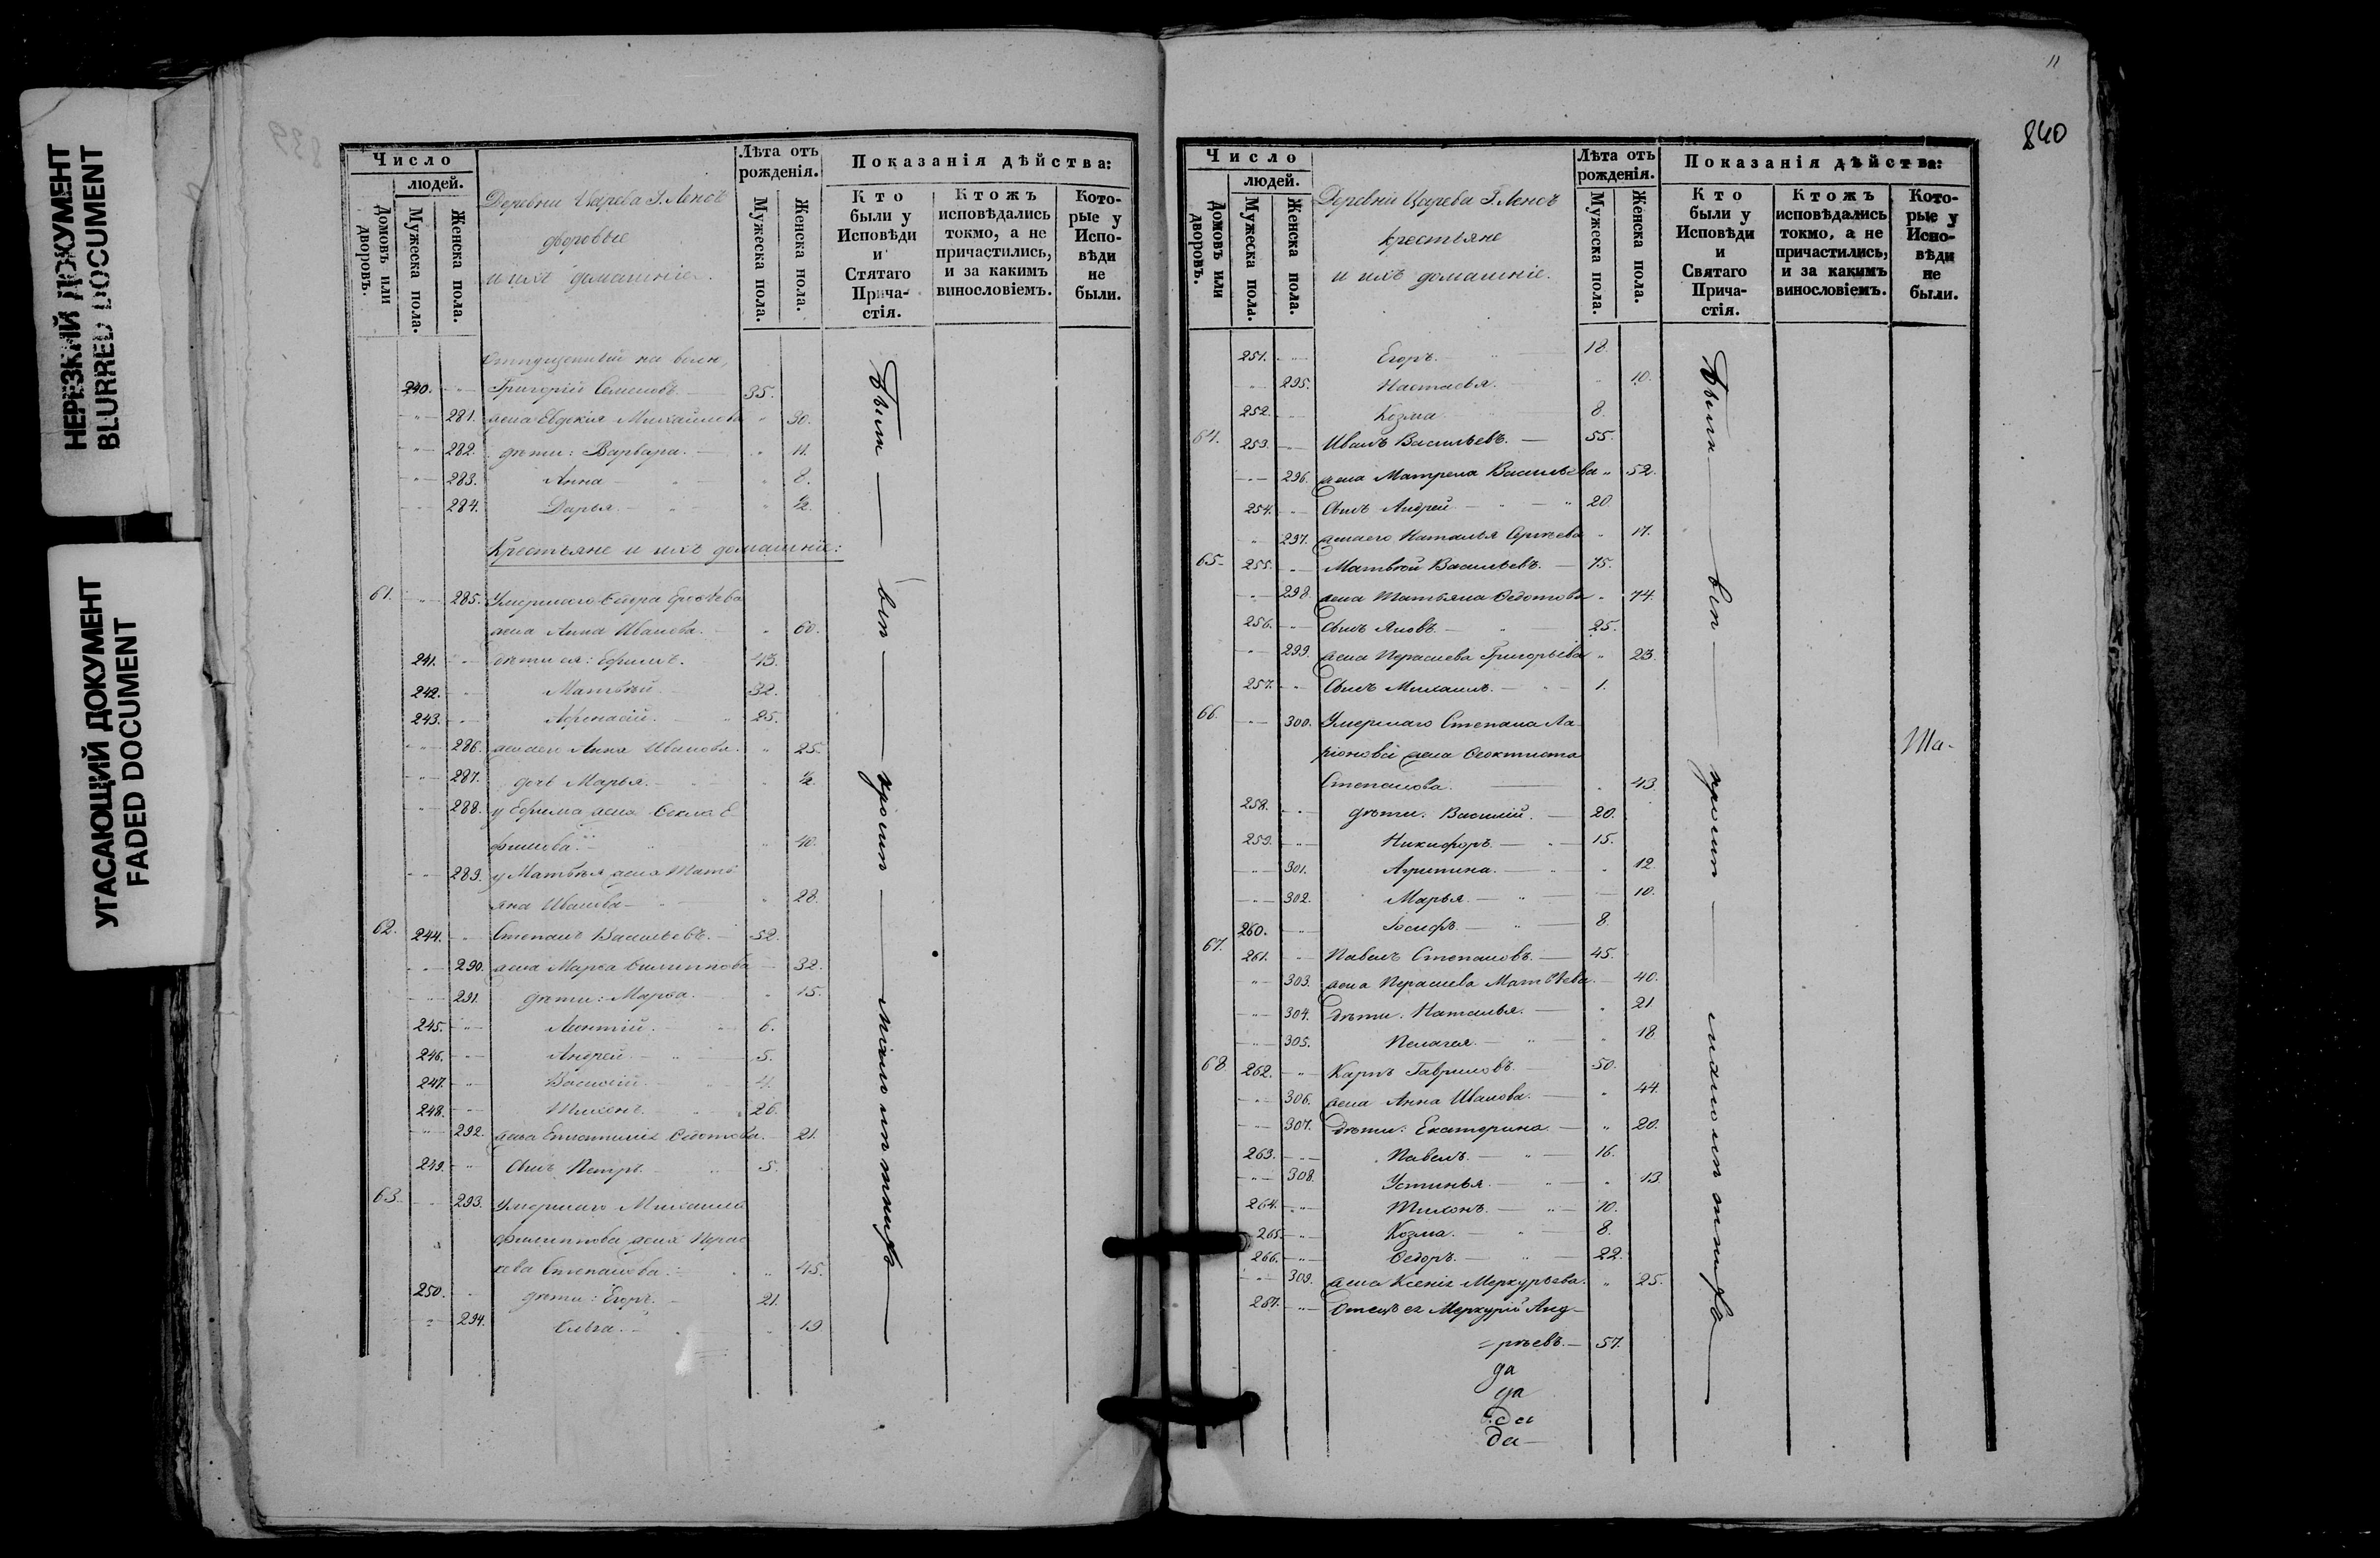 НЕРЕЗКИЙ ДОКУМЕНТ
BLURRED DOCUMENT
УГАСАЮЩИЙ ДОКУМЕНТ
FADED DOCUMENT
Число
людей.
Домовъ или дворовъ.
Мужеска пола.
Женска пола.
Деревни Царева
дворовые
и ихъ домашніе.
Лѣта отъ рожденія.
Мужеска пола.
Женска пола.
Показанія дѣйства:
Кто были у Исповѣди и Стятаго Прича-стія.
Ктожъ исповѣдались токмо, а не причастились, и за какимъ винословіемъ.
Кото-рые у Испо-вѣди не были.
Отпущенный на волю,
240. Григорій Семеновъ 35.
281. жена Евдокія Михайлова 30.
282. дѣти: Варвара. 11.
283. Анна 8.
284. Дарья. ½.
Крестьяне и ихъ домашніе:
61. 285. Умершаго
жена Анна Иванова. 60.
241. дѣти ея: Ефимъ. 43.
242. Матвѣй. 32.
243. Афонасій. 25.
286. жена его Анна Иванова. 25.
287. дочь Марья. ½.
288. у Ефима жена Ѳекла Е
фимова. 40.
289. у Матвѣя жена Тать
яна Иванова 28.
62. 244. Степанъ Васильевъ. 52.
290. жена Марѳа Филиппова 32.
291. дѣти: Марѳа. 15.
245. Леонтій. 6.
246. Андрей. 5.
247. Василій. 4.
248. Тихонъ. 26.
292. жена Епистимія Ѳедотова. 21.
249. Сынъ Петръ. 5.
63. 293. Умершаго Михаила
Филиппова жена Парас
кева Степанова. 45.
250. дѣти: Егоръ. 21.
294. Ольга. 19
Были всѣ кромѣ малолѣтнихъ
11
840
Число
людей.
Домовъ или дворовъ.
Мужеска пола.
Женска пола.
Деревни Царева
крестьяне
и ихъ домашніе.
Лѣта отъ рожденія.
Мужеска пола.
Женска пола.
Показанія дѣйства:
Кто были у Исповѣди и Святаго Прича-стія.
Ктожъ исповѣдались токмо, а не причастились, и за какимъ винословіемъ.
Кото-рые у Испо-вѣди не были.
251. Егоръ. 18.
295. Настасья. 10.
252. Козма 8.
64. 253. Иванъ Васильевъ. 55.
296. жена Матрена Васильева 52.
254. Сынъ Андрей 20
297. жена его Наталья Сергѣева 17.
65. 255. Матвѣй Васильевъ. 75.
298. жена Татьяна Ѳедотова 74.
256. Сынъ Яковъ. 25.
299. жена Параскева Григорьева 23.
257. Сынъ Михаилъ. 1.
66. 300. Умершаго Степана Ла
ріонова жена Ѳеоктиста
Степанова. 43
258. дѣти: Василій. 20.
259. Никифоръ. 15.
301. Агрипина. 12
302. Марья. 10.
260. Іосифъ. 8
67. 261. Павелъ Степановъ. 45.
303. жена Параскева Матвѣева 40.
304. дѣти: Наталья. 21
305. Пелагея. 18
68 262. Карпъ Гавриловъ. 50.
306. жена Анна Иванова. 44.
307. дѣти: Екатерина 20.
263. Павелъ. 16.
308. Устинья. 13
264. Тихонъ. 10.
265. Козма. 8.
266. Ѳедоръ. 22.
309. жена Ксенія Меркурьева. 25.
267. Отецъ ея Меркурій Анд-
рѣевъ. 57.
да
да
да
да
Были всѣ кромѣ малолѣтнихъ